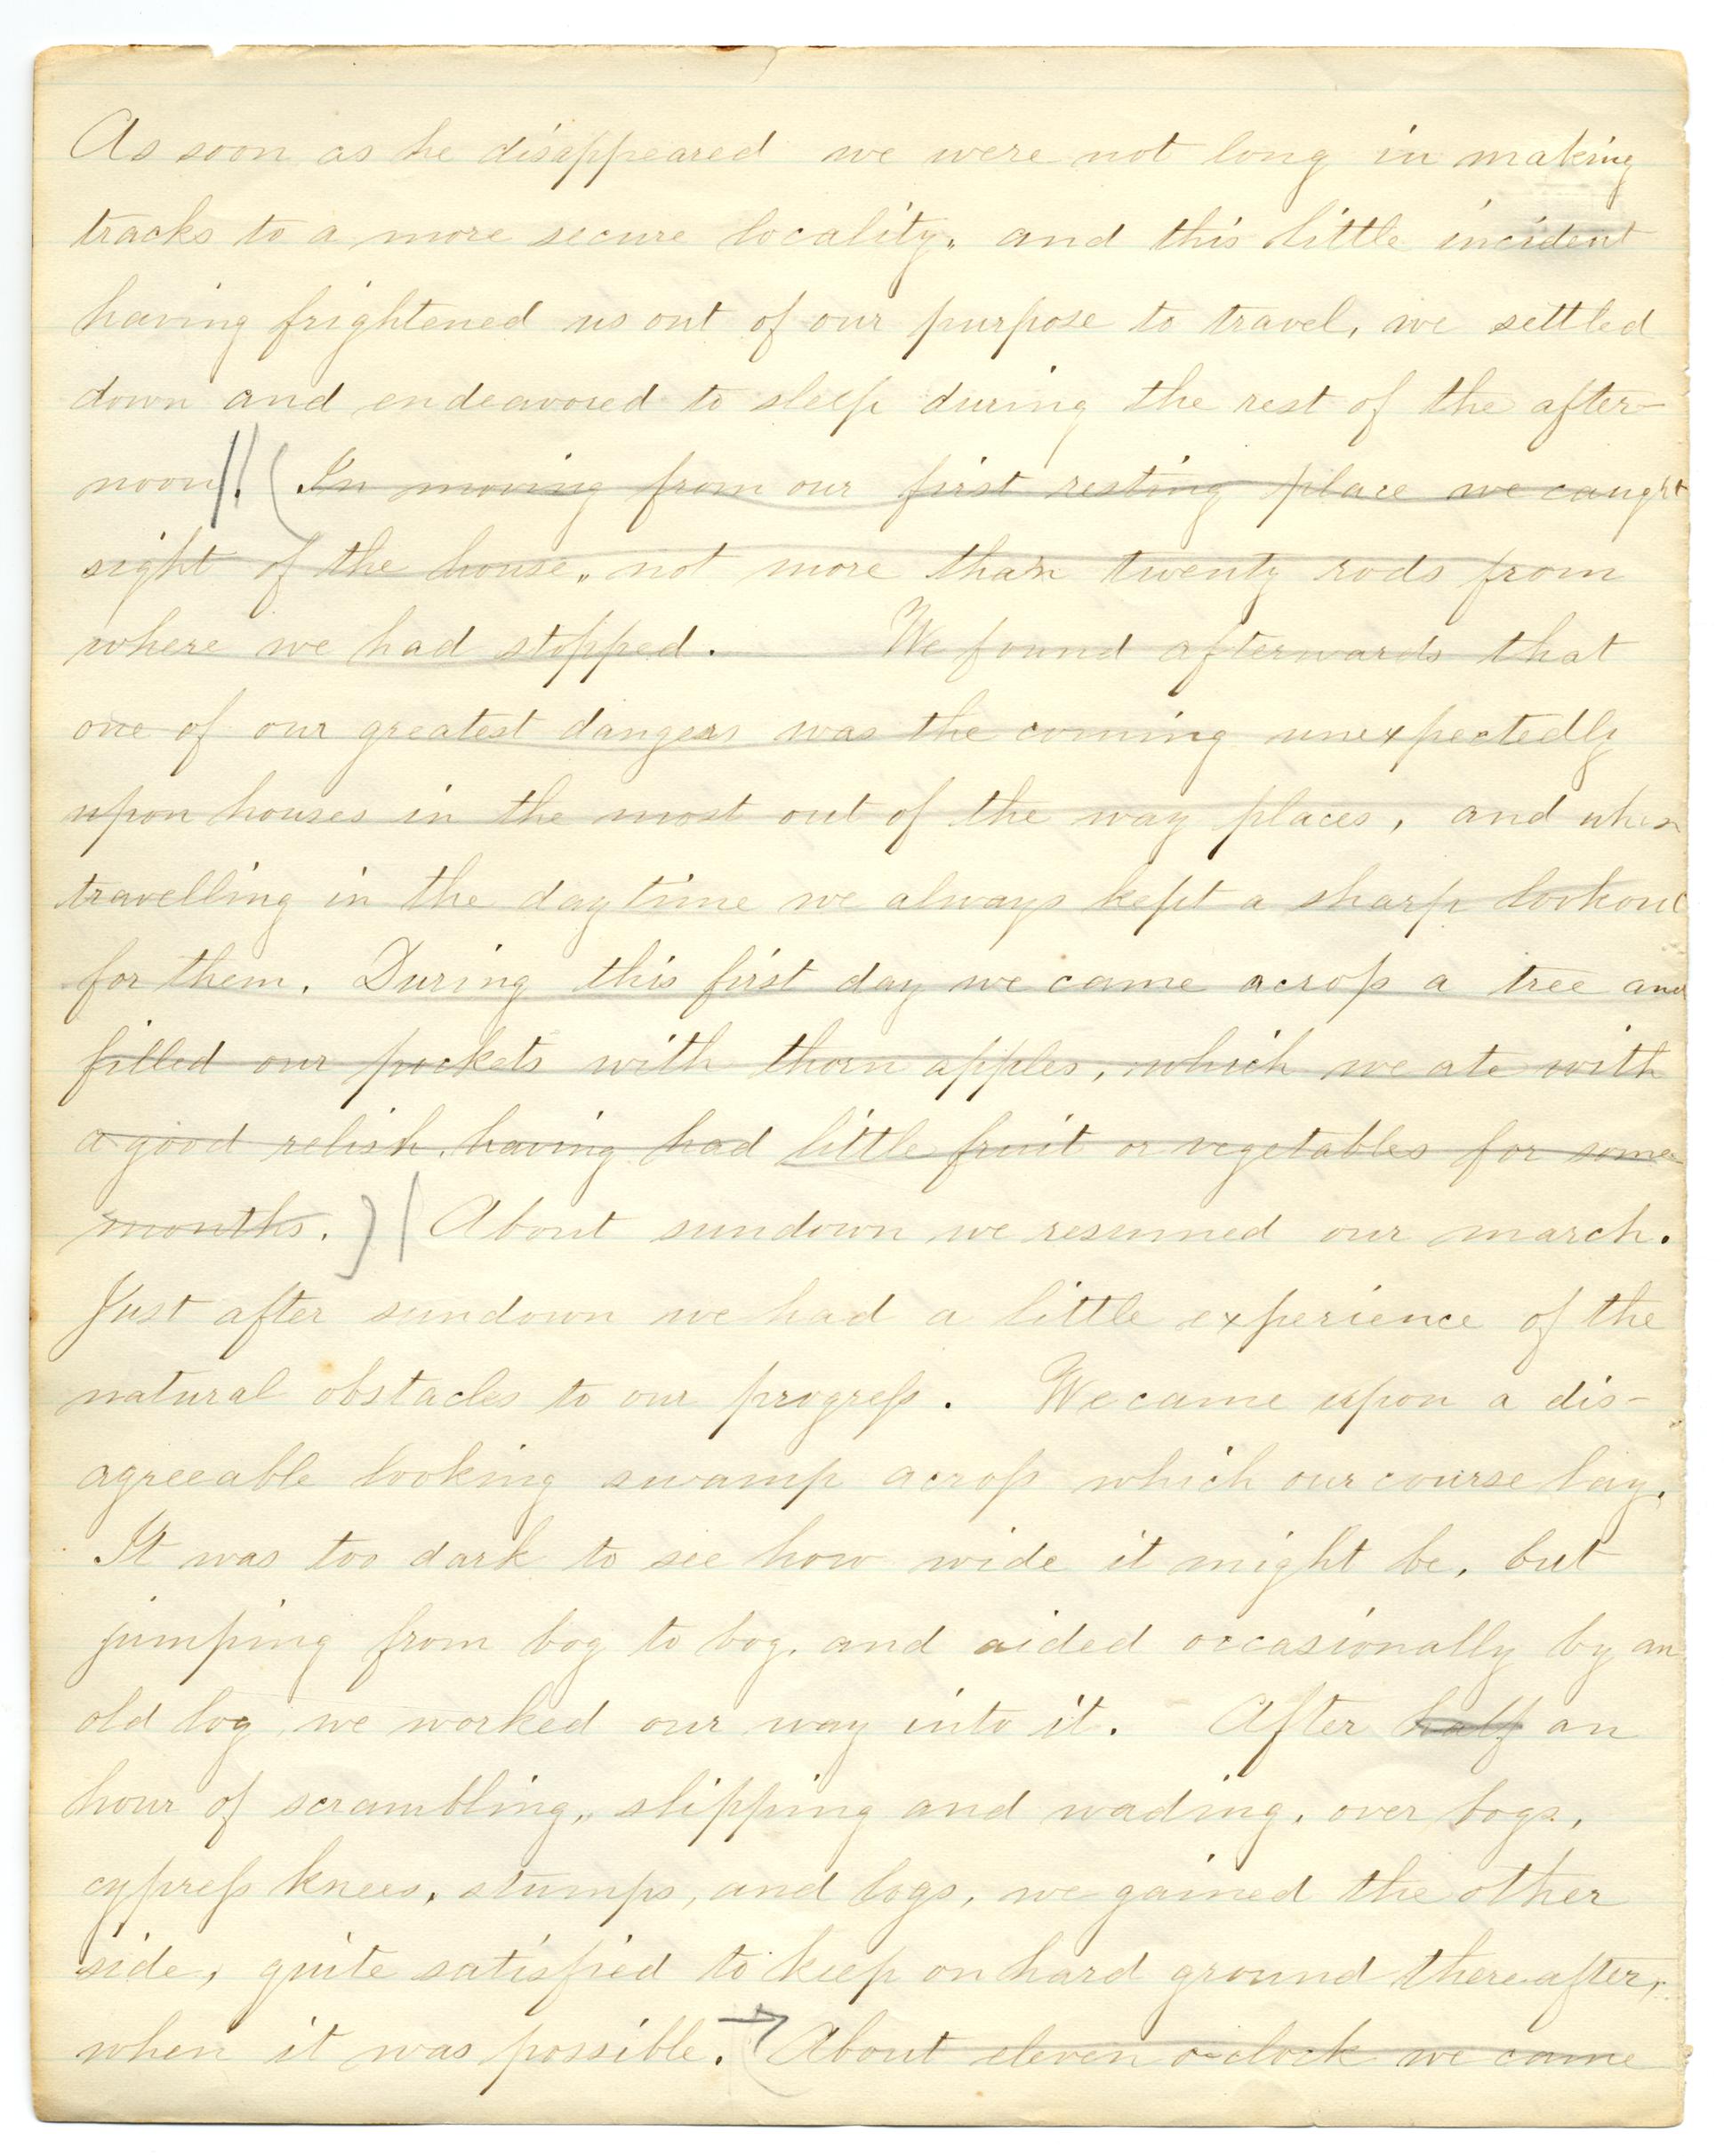 As soon as he disappeared we were not long in making
tracks to a more secure locality, and this little incident
having frightened us out of our purpose to travel, we settled
down and endeavored to sleep during the rest of the after-
noon. (In moving from our first resting place we caught
sight of the house, not more than twenty rods from
where we had stopped. We found afterwards that
one of our greatest dangers was the coming unexpectedly
upon houses in the most out of the way places, and when
travelling in the daytime we always kept a sharp lookout
for them. During this first day we came across a tree and
filled our pockets with thorn apples, which we ate with
a good relish, having had little fruit or vegetables for some
months.) About sundown we resumed our march.
Just after sundown we had a little experience of the
natural obstacles to our progress. We came upon a dis-
agreeable looking swamp across which our course lay.
It was too dark to see how wide it might be, but
jumping from bog to bog, and aided occasionally by an
old log, we worked our way into it. After half an
hour of scrambling, slipping and wading, over bogs,
cypress knees, stumps, and logs, we gained the other
side, quite satisfied to keep on hard ground thereafter,
when it was possible. → (About eleven o-clock we came